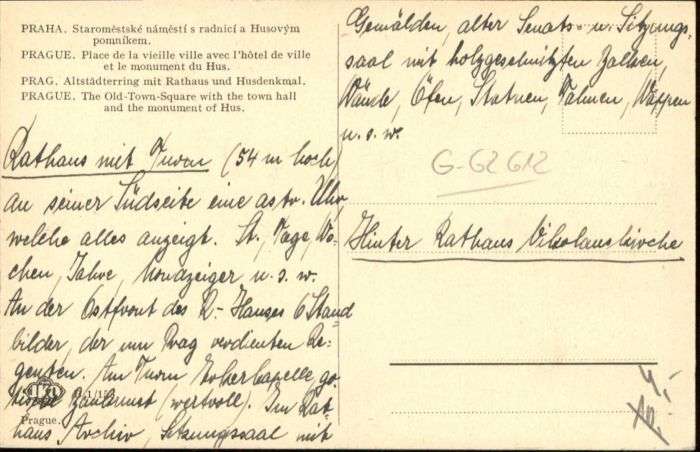 PRAHA. Staroměstské náměstí s radnicí a Husovým
pomníkem.
PRAGUE. Place de la vieille ville avec l'hôtel de ville
et le monument du Hus.
PRAG. Altstädterring mit Rathaus und Husdenkmal.
PRAGUE. The Old-Town-Square with the town hall
and the monument of Hus.
Rathaus mit Turm (54 m hoch)
an seiner Südseite eine astr. Uhr,
welche alles anzeigt. St., Tage, Wo-
chen, Jahre, Mondzeiger u. s. w.
An der Ostfront des R.- Hauses 6 Stand
bilder, der um Prag verdienten Re-
genten. Am Turm Erkerkapelle, go-
Baukunst (wertvoll). Im Rat-
haus Archiv, Sitzungssaal mit
Prague.
Gemälden, alter Senats- u. Sitzungs-
saal mit holzgeschnitzten Balken,
Wände, Öfen, Statuen, Fahnen, Wappen
u. s. w.
G-62612
Hinter Rathaus Nikolauskirche